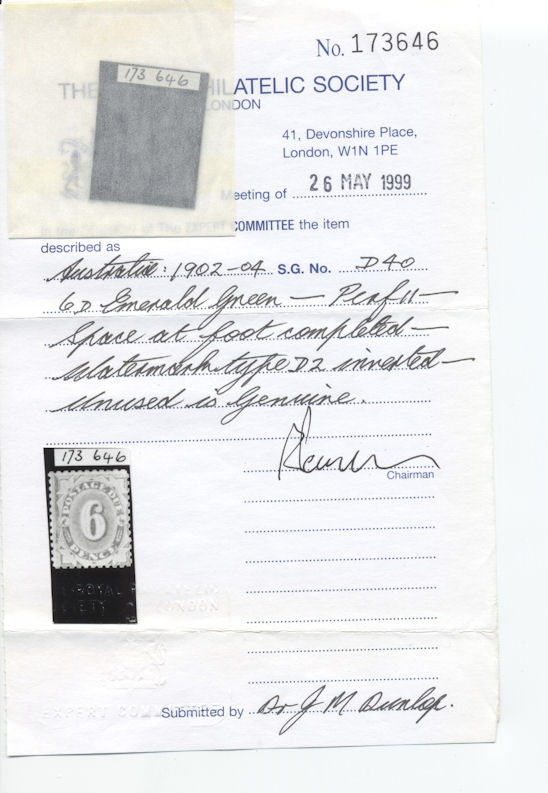 No. 173646
173 646
THE HILATELIC SOCIETY
LONDON
41, Devonshire Place,
London, W1N 1PE
Meeting of 26 MAY 1999
In the The EXPERT COMMITTEE the item
described as
Australia: 1902-04 S.G. No. D40
6D Emerald Green — Perf 11 —
Space at foot completed —
Watermark type D2 inverted —
Unused is Genuine.
Chairman
173 646
POSTAGE DUE
6
PENCE
ROYAL
LONDON
EXPERT COMM
Submitted by Dr J M Dunlop.